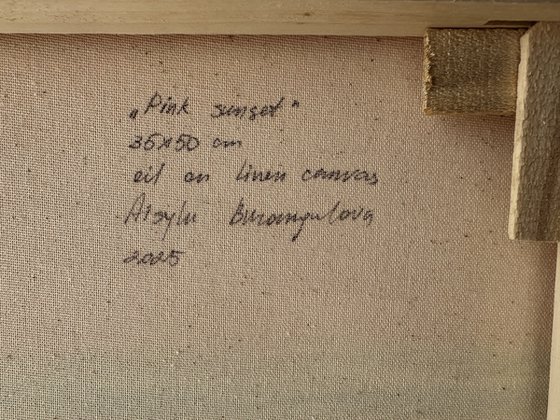 „Pink sunset"
35x50 cm
oil on linen canvas
Aisylu Burangulova
2025